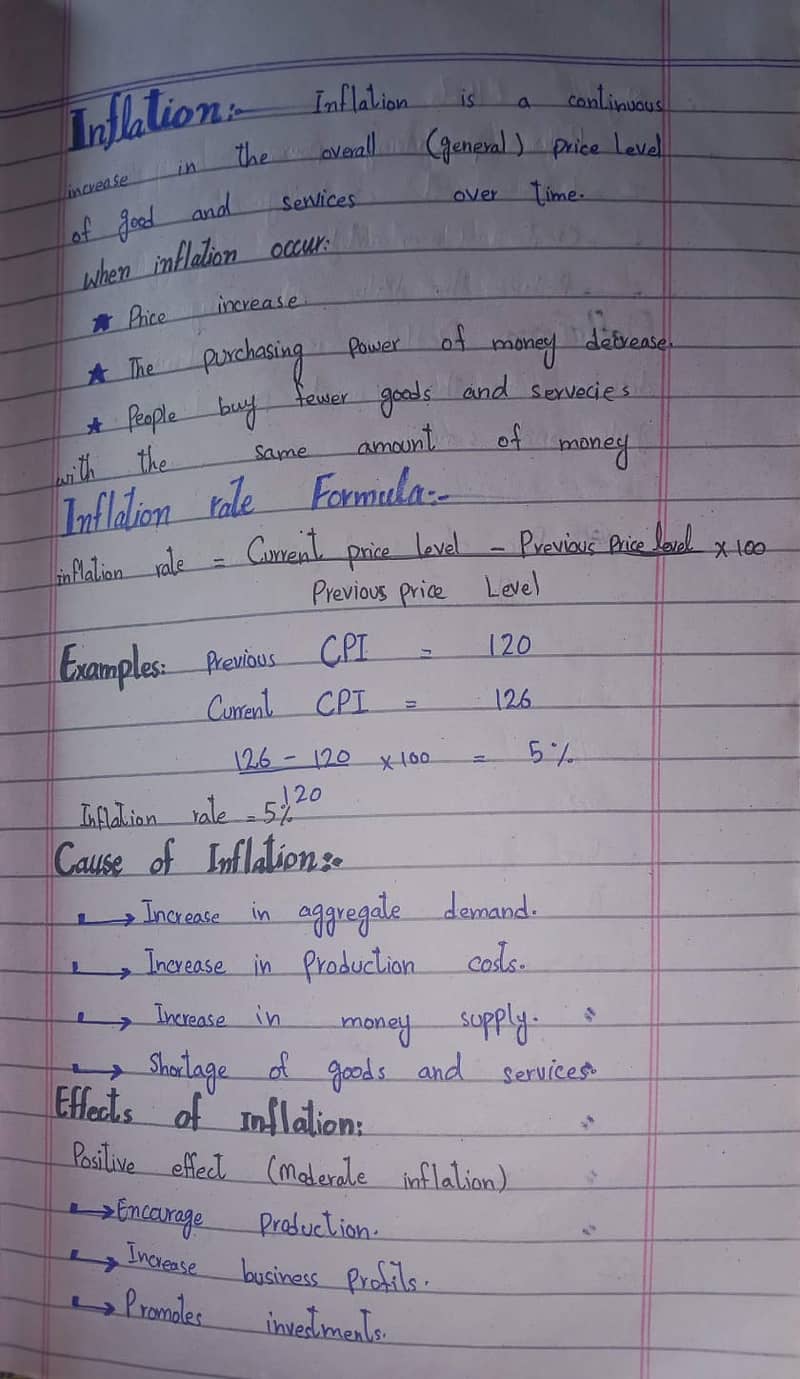 Inflation:- Inflation is a continuous
increase in the overall (general) price level
of good and services over time.
when inflation occur:
★ Price increase.
★ The purchasing power of money decrease.
★ People buy fewer goods and servecies
with the same amount of money
Inflation rate Formula:-
inflation rate = Current price level - Previous Price level × 100
Previous price Level
Examples: Previous CPI = 120
Current CPI = 126
126 - 120 × 100 = 5%
120
Inflation rate = 5%
Cause of Inflation:-
→ Increase in aggregate demand.
→ Increase in Production costs.
→ Increase in money supply.
→ Shortage of goods and services.
Effects of Inflation:
Positive effect (Moderate inflation)
→ Encourage Production.
→ Increase business Profits.
→ Promotes investments.